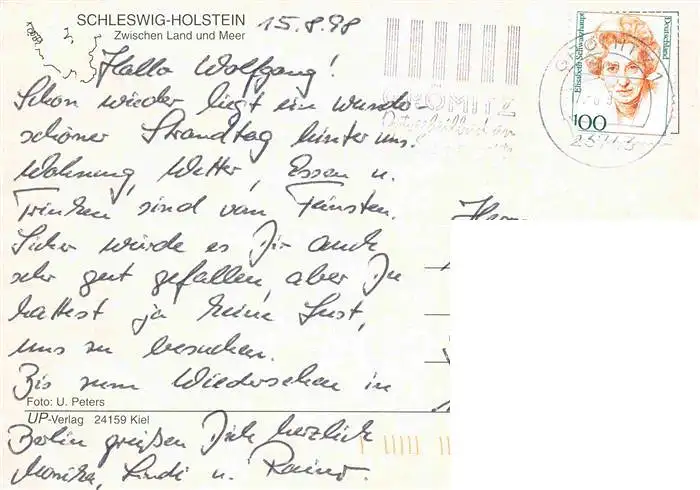 SCHLESWIG-HOLSTEIN
Zwischen Land und Meer
15.8.98
Hallo Wolfgang!
Schon wieder liegt ein wunder
schöner Strandtag hinter uns.
Wohnung, Wetter, Essen u.
Trinken sind vom Feinsten.
Sicher würde es Dir auch
sehr gut gefallen, aber Du
hattest ja keine Lust,
uns zu besuchen.
Bis zum Wiedersehen in
Foto: U. Peters
UP-Verlag 24159 Kiel
Berlin grüßen Dich herzlich
Monika, Lindi u. Rainer.
Elisabeth Schwarzhaupt
Deutschland
100
GRÖMITZ
Herrn